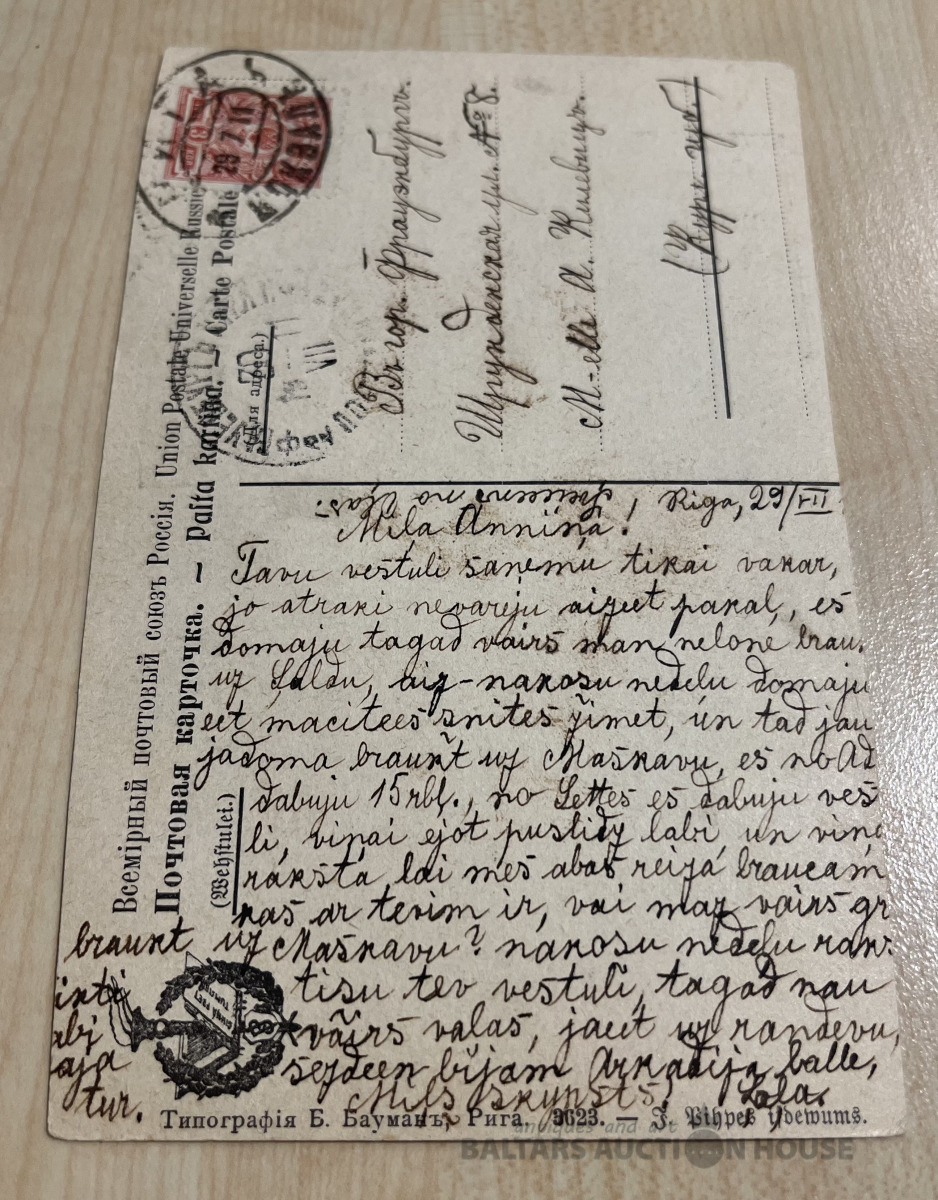 Всемірный почтовый союзъ Россія. Union Postale Universelle Russie
Почтовая карточка. – Pasta kartiņa. – Carte Postale
(Для адреса.)
29 7 11
VII
Въ гор. Фрауэнбургъ.
Шрунденская ул. № 8.
M-elle А.
(Курл. губ.)
Riga, 29/VII
Mila Anniņa!
Tavu vestuli saņemu tikai vakar,
jo atraki nevareju aizeet pakaļ, es
domaju tagad vairs man nelone brau.
uz Saldu, aiz-nakošu nedelu domaju
eet macitees snites žimet, un tad jau
jadoma braukt uz Maskavu, es no Ad
dabuju 15 rbļ., no Lettes es dabuju ves
li, viņai ejot puslidz labi, un viņa
raksta lai mes abas reiza braucam
kas ar tevim ir, vai maz vairs gr
braukt uz Maskavu? nakošu nedelu rak:
tisu tev vestuli, tagad nau
vairs vaļas, jaeet uz randevu,
sejdeen bijam Arkadija balle,
Mīļš skupsts! Lola.
abi
aja
tur.
(Wehstulei.)
Типографія Б. Бауманъ, Рига. 3623. — J. Bihpes isdewums.
antiques and art
BALTARS AUCTION HOUSE